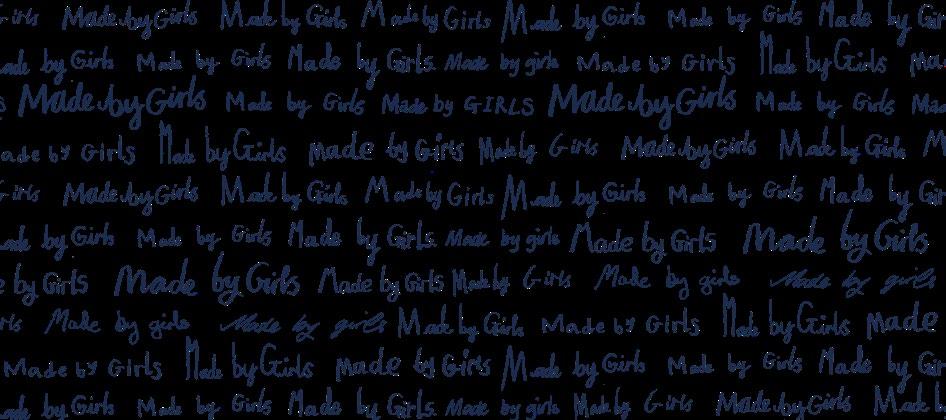 Girls Made by Girls Made by Girls Made by Girls Made by Girls Made by Girls Made by Gir
ade by Girls Made by Girls Made by Girls Made by girls Made by Girls Made by Girls Ma
s Made by Girls Made by Girls Made by GIRLS Made by Girls Made by Girls Ma
ade by Girls Made by Girls Made by Girls Made by Girls Made by Girls Made by Girls M
Girls Made by Girls Made by Girls Made by Girls Made by Girls Made by Girls Made by Gir
ade by Girls Made by Girls Made by Girls Made by girls Made by Girls Made by Girls
e by Girls Made by Girls Made by Girls Made by Girls Made by girls Made by girls
rls Made by girls Made by girls Made by Girls Made by Girls Made by Girls Made
Made by Girls Made by Girls Made by Girls Made by Girls Made by Girls Made by Gir
ade by Girls Made by Girls Made by Girls Made by girls Made by Girls Made by Girls Made b